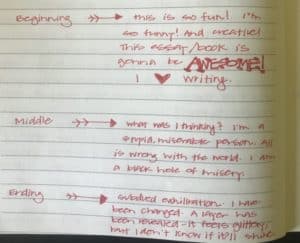 Beginning →→ this is so fun! I'm
so funny! And creative!
This essay/book is
gonna be AWESOME!
I ♥ writing.
Middle →→ what was I thinking? I'm a
stupid, miserable person. All
is wrong with the world. I am
a black hole of misery.
Ending →→ subdued exhilaration. I have
been changed. A layer has
been revealed - it feels glittery,
but I don't know if it'll